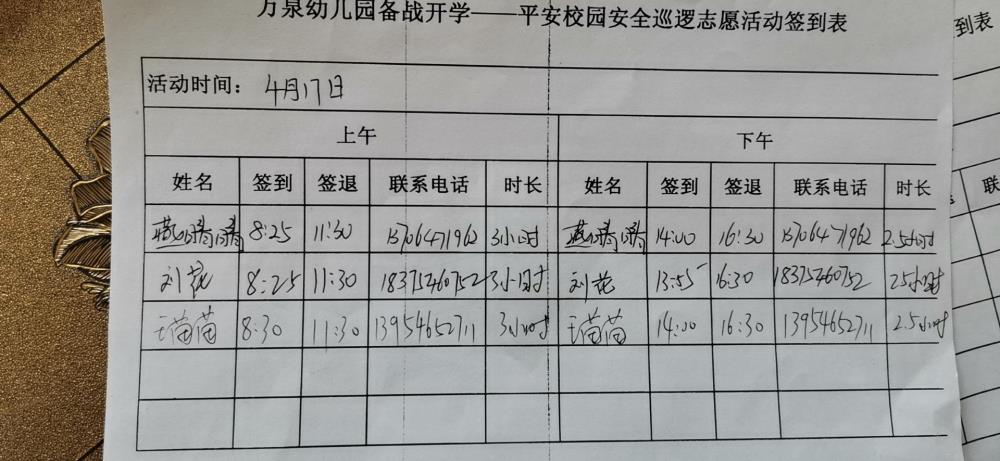 万泉幼儿园备战开学——平安校园安全巡逻志愿活动签到表
到表
活动时间: 4月17日
上午 下午
姓名 签到 签退 联系电话 时长 姓名 签到 签退 联系电话 时长
联
8:25 11:30 15706471962 3小时 14:00 16:30 15706471962 2.5小时
刘花 8:25 11:30 18375460752 3小时 刘花 13:55 16:30 18375460752 2.5小时
王苗苗 8:30 11:30 13954652711 3小时 王苗苗 14:00 16:30 13954652711 2.5小时